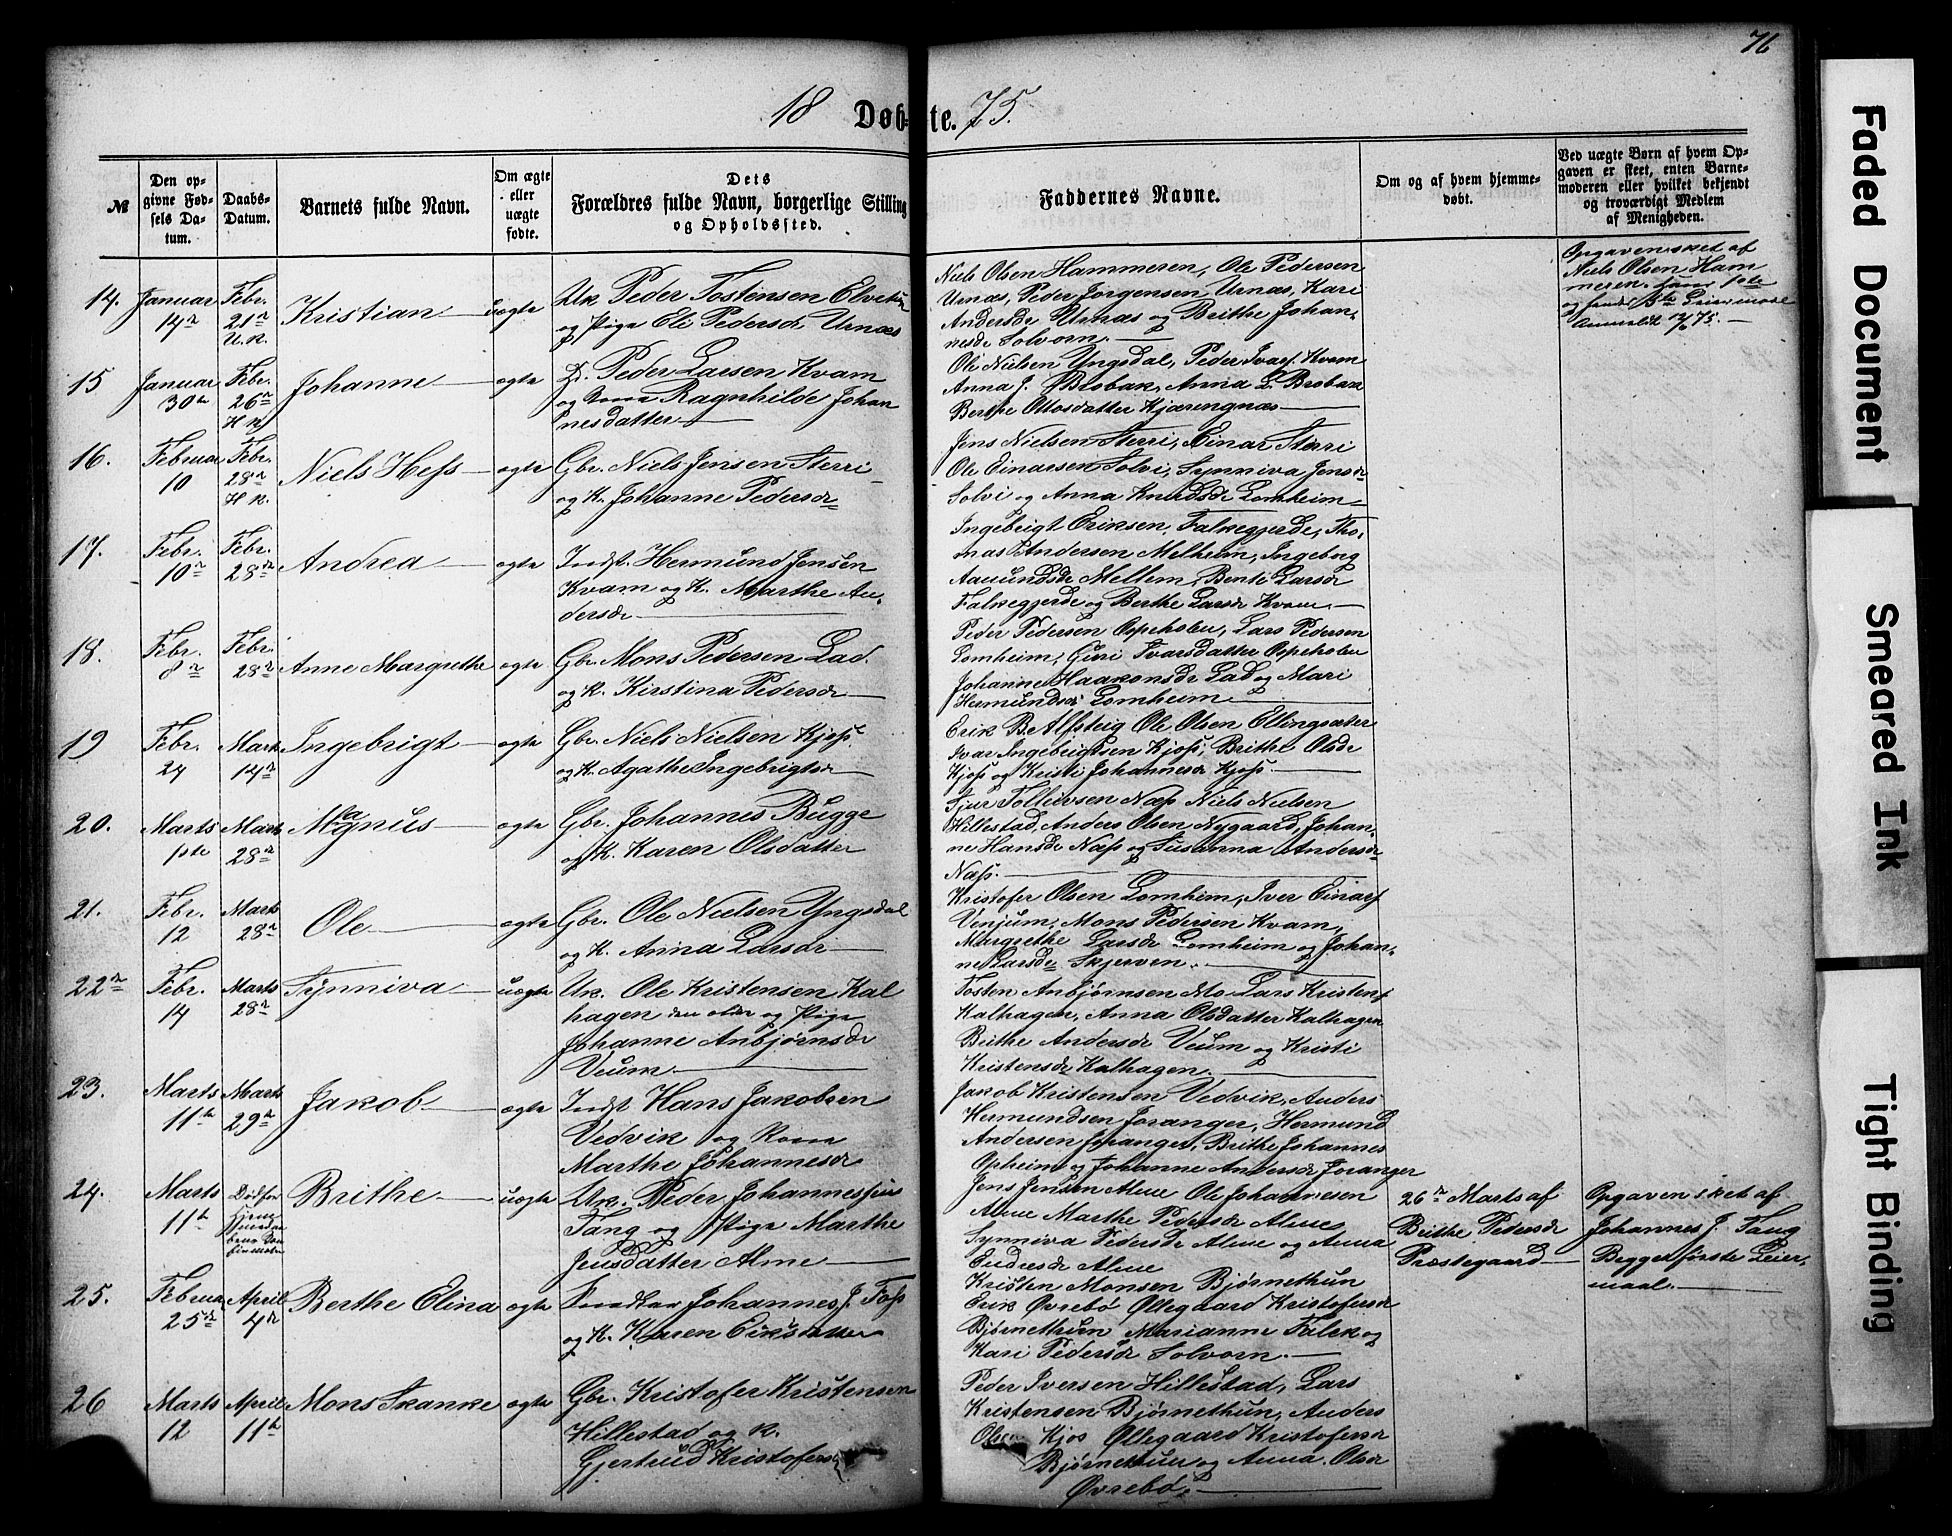 76
18 Døb-te. 75.
№
Den op-
givne Fød-
sels Da-
tum.
Daabs-
Datum.
Barnets fulde Navn.
Om ægte
eller
uægte
fødte.
Dets
Forældres fulde Navn, borgerlige Stilling
og Opholdssted.
Faddernes Navne.
Om og af hvem hjemme-
døbt.
Ved uægte Børn af hvem Op-
gaven er skeet, enten Barne-
moderen eller hvilket bekjendt
og troværdigt Medlem
af Menigheden.
14. Januar 14n
Febr. 21n U.K.
Kristian
uægte
Uk. Peder Tostensen
og Pige Eli Pedersdr Urnæs
Niels Olsen Hammeren, Ole Pedersen
Urnæs, Peder Jørgensen Urnæs, Kari
Andersdr Urnæs og Brithe Johan-
nesdr Solvorn.
Opgaven sket af
Niels Olsen Ham
meren. hans 1ste
og hendes Leiermaal
15 Januar 30te
Febr. 26n H K
Johanne
ægte
Peder Larsen Kvam
og Kone Ragnhilde Johan
nesdatter
Ole Nielsen Yngsdal, Peder Ivars. Kvam
Anna J. Brobak, Anna L. Brobak
Berthe Ottosdatter Kjærengnæs
16. Februar 10
Febr. 28n H K.
Niels Hess
ægte
Gbr. Niels Jensen Sterri
og K. Johanne Pedersdr
Jens Nielsen Sterri, Einar Sterri
Ole Einarsen Solvi, Synniva Jensdr
Solvi og Anna Knudsdr Lomheim
17. Febr. 10n
Febr. 28n
Andrea
ægte
Indst. Hermund Jensen
Kvam og K. Marthe An-
dersdr
Ingebrigt Eriksen Falkegjerde, Tho-
mas Andersen Melheim, Ingeborg
Aamundsdr Mellem, Bente Larsdr
Falkegjerde og Berthe Larsdr Kvam
18. Febr. 8n
Febr. 28n
Anne Margrethe
ægte
Gbr. Mons Pedersen Lad.
og K. Kirstina Pedersdr
Peder Pedersen Ospeholen, Lars Pedersen
Lomheim, Guri Ivarsdatter Ospeholen
Johanne Haakonsdr Lad og Mari
Hermundsdr Lomheim
19 Febr. 24
Marts 14n
Ingebrigt
ægte
Gbr. Niels Nielsen Kjos.
og K. Agathe Ingebrigtsdr
Erik B. Alfsteig Ole Olsen Ellingsæter
Ivar Ingebrigtsen Kjos, Brithe Olsdr
Kjos og Kristi Johannesdr Kjos.
20. Marts 1ste
Marts 28n
Magnus
ægte
Gbr. Johannes Bugge
og K. Karen Olsdatter
Tjur Tollevsen Næs Niels Nielsen
Hillestad, Anders Olsen Nygaard, Johan-
ne Hansdr Næss og Susanna Andersdr
Næss.
21. Febr. 12
Marts 28n
Ole
ægte
Gbr. Ole Nielsen Yngsdal
og K. Anna Larsdr
Kristofer Olsen Lomheim, Iver Einars
Venjum, Mons Pedersen Kvam,
Margrethe Larsdr Lomheim og Johan-
ne Larsdr Skjerven.
22n Febr. 14
Marts 28n
Synniva
uægte
Uk. Ole Kristensen Kal
hagen den eldre og Pige
Johanne Anbjørnsdr
Veum.
Tosten Anbjørnsen Mo Lars Kristens
Kalhagen, Anna Olsdatter Kalhagen
Brithe Andersdr Veum og Kristi
Kristensdr Kalhagen.
23. Marts 11te
Marts 29n
Jakob
ægte
Indst Hans Jakobsen
Vedvik og Kone
Marthe Johannesdr
Jakob Kristensen Vedvik, Anders
Hermundsen Joranger, Hermund
Andersen Joranger, Brithe Johannes
Opheim og Johanne Andersdr Joranger
24. Marts 11te
Brithe
uægte
Uk. Peder Johannessen
Tang og Pige Marthe
Jensdatter Alme
Jens Jensen Alme Ole Johannesen
Alme Marthe Pedersdr Alme
Synniva Pedersdr Alme og Anna
Endresdr Alme
26n Marts af
Brithe Pedersdr
Præstegaard
Opgaven sket af
Johannes J. Tang
Begges første Leier-
maal.
25. Februar 25n
April 4n
Berthe Elina
ægte
Johannes J. Foss
og K. Karen Eriksdatter
Kristen Monsen Bjørnethun
Erik Øvrebø Øllegaard Kristofersdr
Bjørnethun Marianne Falck og
Kari Pedersdr Solvorn.
26 Marts 12
April 11te
Mons Skanke
ægte
Gbr. Kristofer Kristensen
Hillestad og K.
Gjertrud Kristofersdr
Peder Iversen Hillestad, Lars
Kristensen Bjørnethun, Anders
Olsen Kjos Øllegaard Kristofersdr
Bjørnethun og Anna Olsdr
Øvrebø.
Faded Document
Smeared Ink
Tight Binding